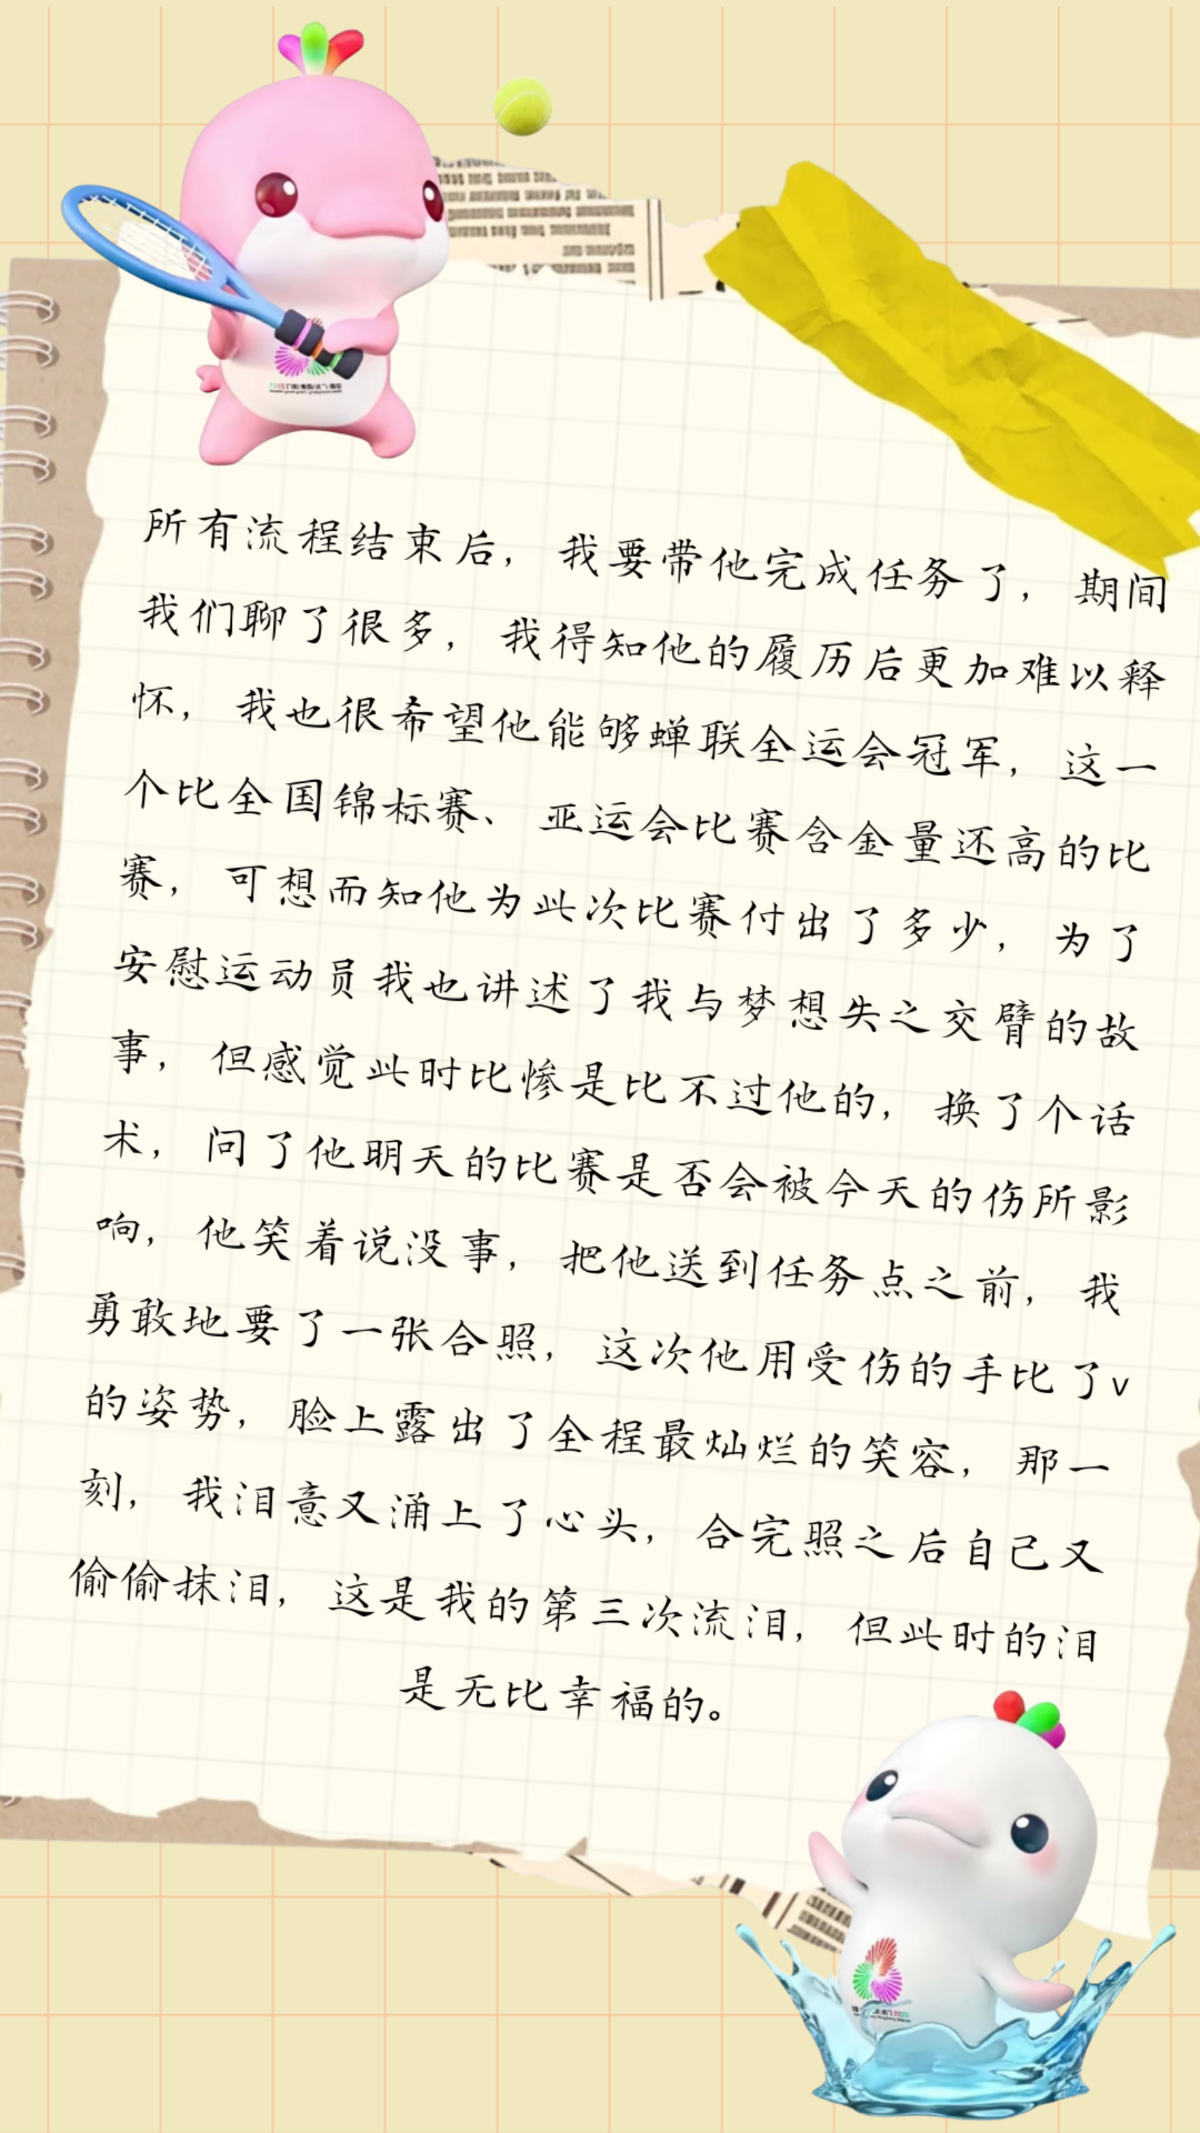 所有流程结束后，我要带他完成任务了，期间
我们聊了很多，我得知他的履历后更加难以释
怀，我也很希望他能够蝉联全运会冠军，这一
个比全国锦标赛、亚运会比赛含金量还高的比
赛，可想而知他为此次比赛付出了多少，为了
安慰运动员我也讲述了我与梦想失之交臂的故
事，但感觉此时比惨是比不过他的，换了个话
术，问了他明天的比赛是否会被今天的伤所影
响，他笑着说没事，把他送到任务点之前，我
勇敢地要了一张合照，这次他用受伤的手比了v
的姿势，脸上露出了全程最灿烂的笑容，那一
刻，我泪意又涌上了心头，合完照之后自己又
偷偷抹泪，这是我的第三次流泪，但此时的泪
是无比幸福的。